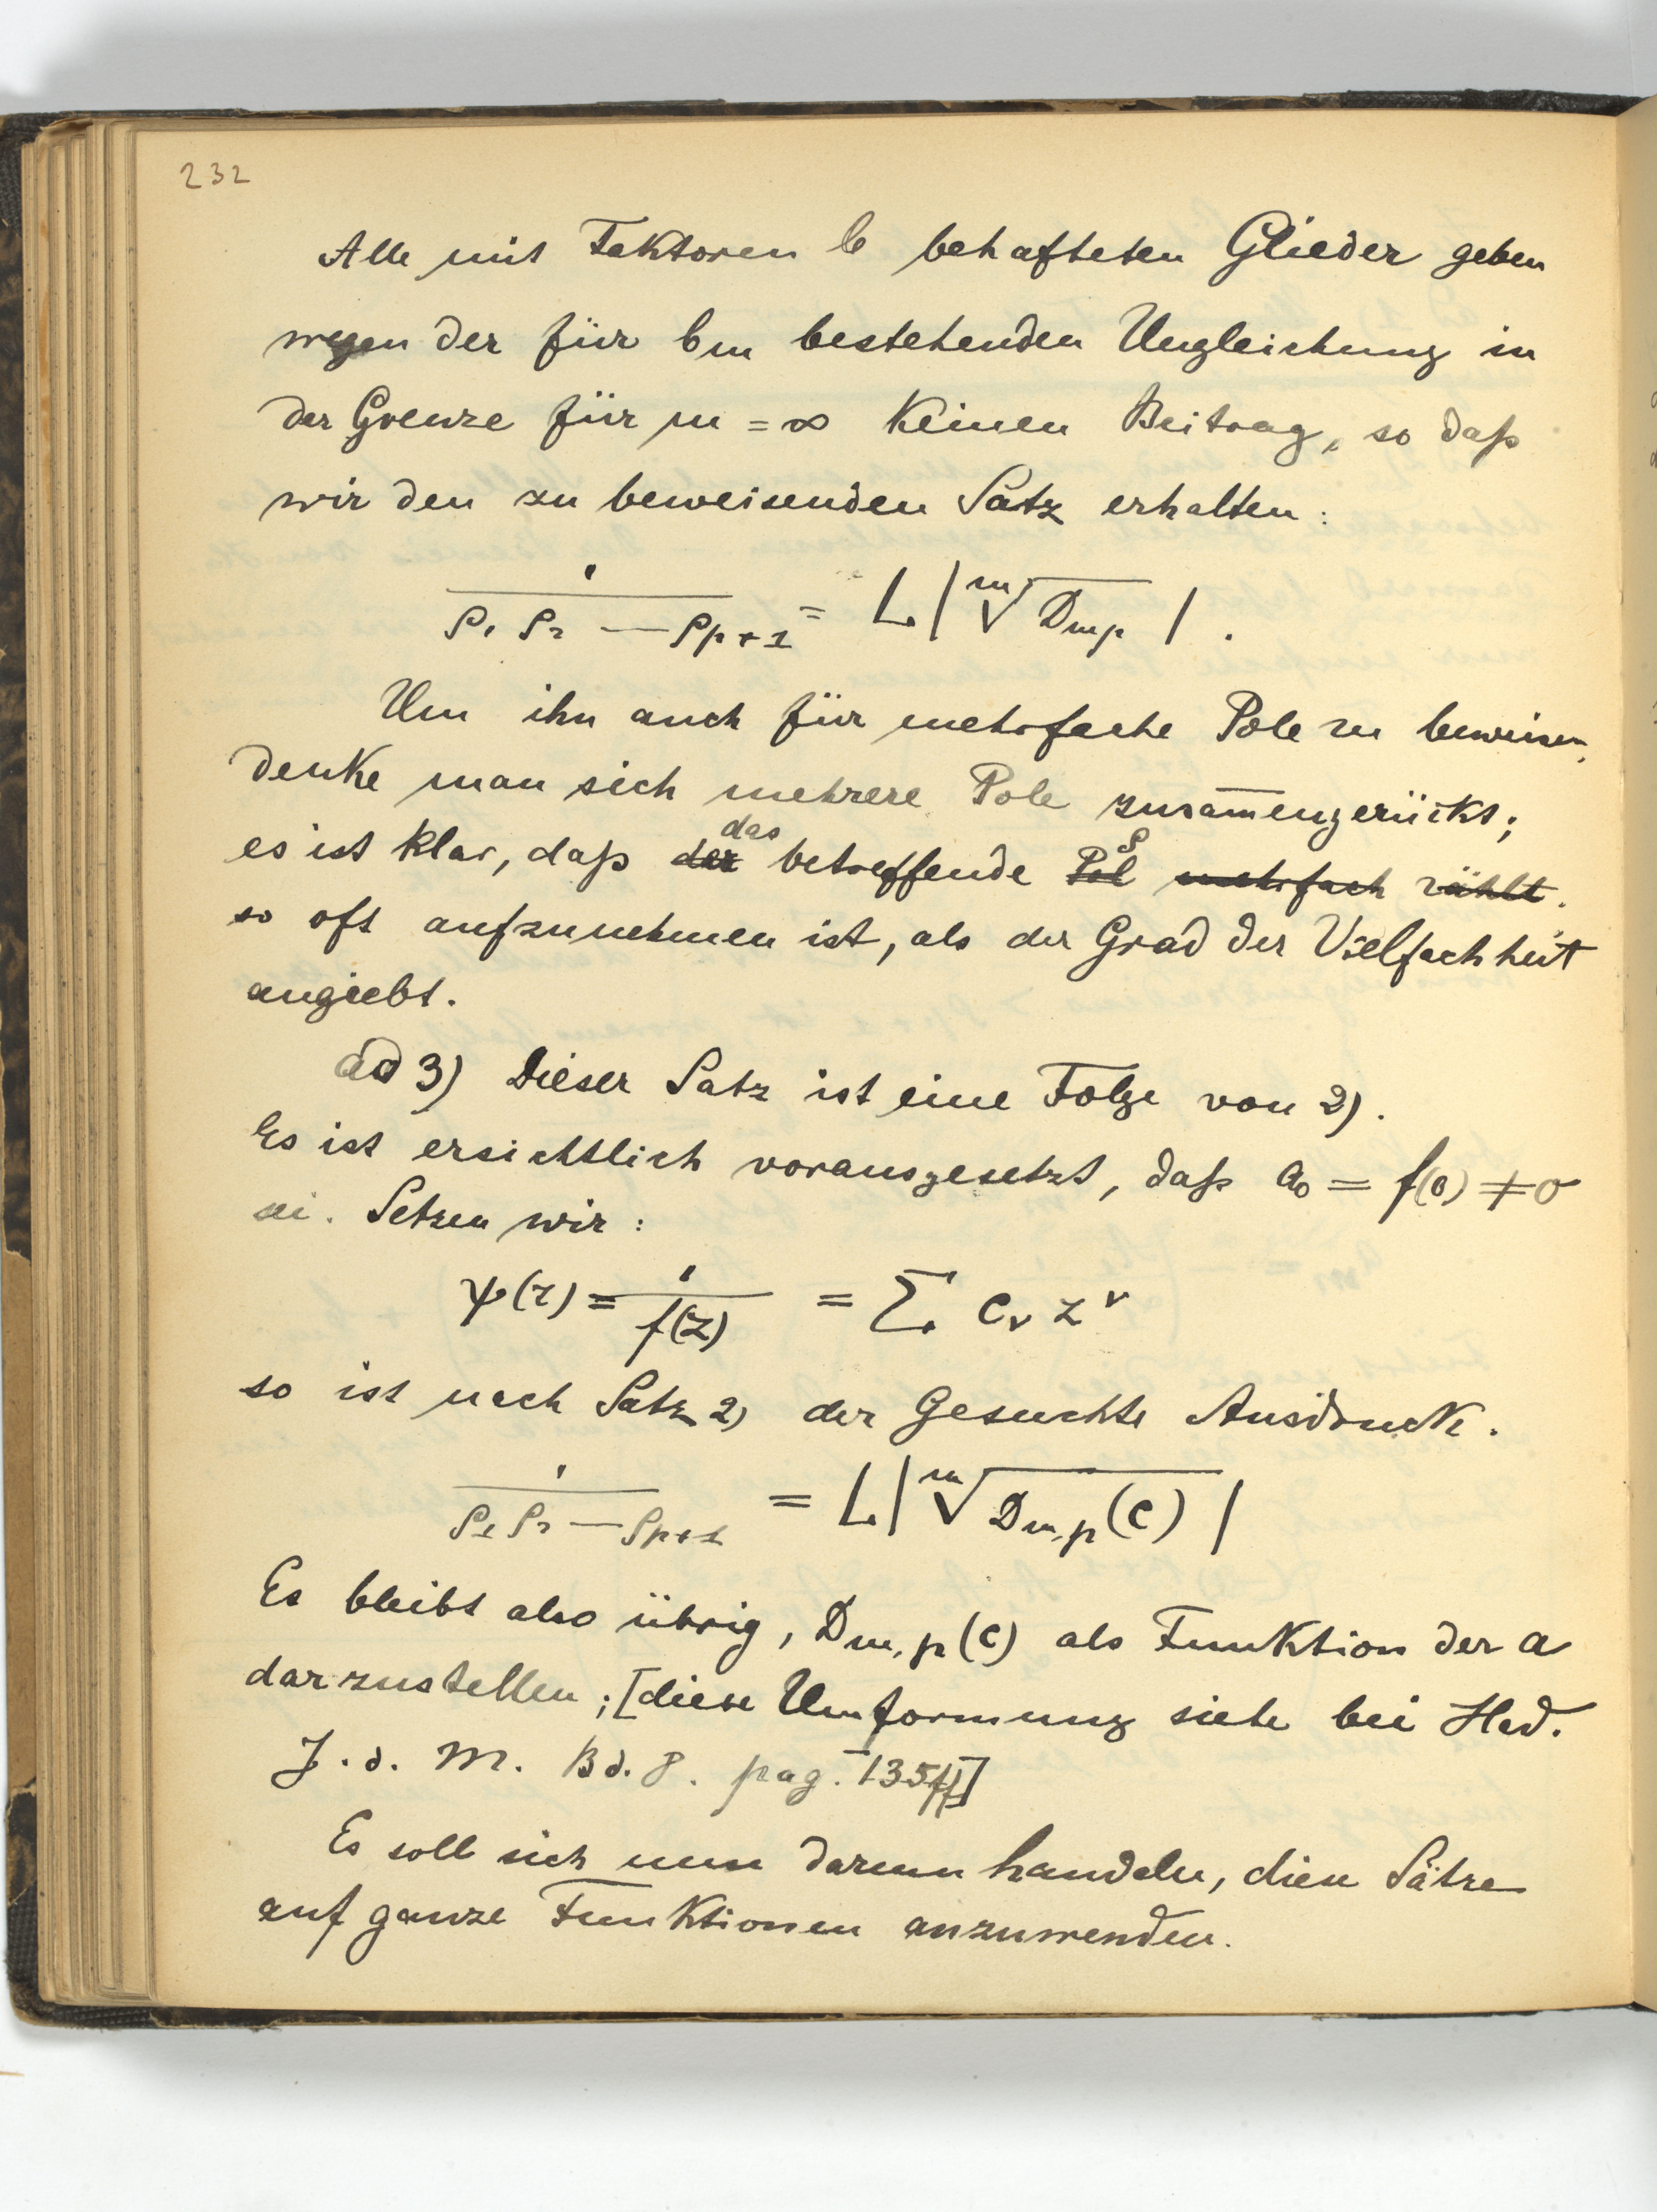 232
Alle mit Faktoren b behafteten Glieder geben
wegen der für bm bestehenden Ungleichung in
der Grenze für m = ∞ keinen Beitrag, so daß
wir den zu beweisenden Satz erhalten:
1 / ρ1 ρ2 — ρp+1 = L |m√Dmp| .
Um ihn auch für mehrfache Pole zu beweisen,
denke man sich mehrere Pole zusam̄engerückt;
es ist klar, daß der das betreffende Pol ρ mehrfach zählt.
so oft aufzunehmen ist, als der Grad der Vielfachheit
angiebt.
ad 3) Dieser Satz ist eine Folge von 2).
Es ist ersichtlich vorausgesetzt, daß a0 = f(0) ≠ 0
sei. Setzen wir:
ψ(z) = 1 / f(z) = Σ cν z^ν
so ist nach Satz 2) der Gesuchte Ausdruck.
1 / ρ1 ρ2 — ρp+1 = L |m√Dm,p(c)|
Es bleibt also übrig, Dm,p(c) als Funktion der a
darzustellen; [diese Umformung siehe bei Had.
J. d. M. Bd. 8. pag. 135ff]
Es soll sich nun darum handeln, diese Sätze
auf ganze Funktionen anzuwenden.